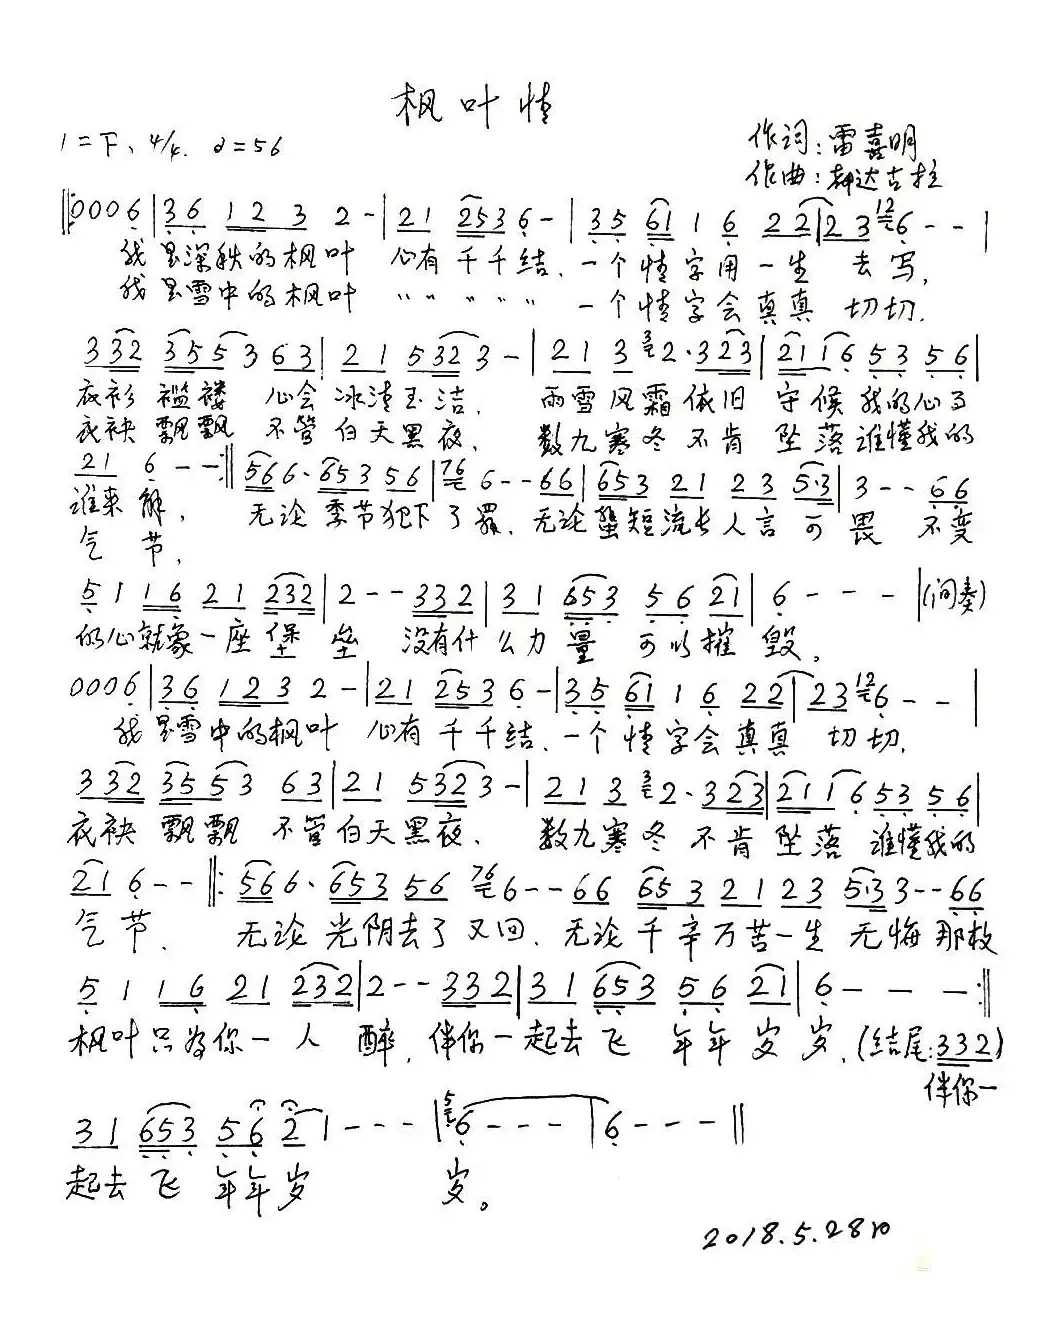 枫叶情
1=F、4/4. ♩=56
作词:雷喜明
作曲:都达古拉
‖:0006|36 123 2-|21 2536-|35 61 1 6 22|23 12 6--|
我是深秋的枫叶 心有千千结、一个情字用一生 去写,
我是雪中的枫叶 〃〃〃〃〃 一个情字会真真 切切.
332 355363|21 5323-|21 3 3 2·323|2116 53 56|
衣衫 褴褛 心会冰清玉洁, 雨雪风霜依旧 守候我的心为
衣袂 飘飘 不管白天黑夜、 数九寒冬不肯 坠落谁懂我的
21 6--:‖566·653 56|76 6--66|653 21 23 5·3|3--66
谁来解, 无论 季节犯下了罪, 无论蜚短流长人言可畏 不变
气节,
5 1 16 21 232|2--332|31 653 56 21|6---|(间奏)
的心就象一座堡垒 没有什么力量 可以摧毁。
0006|36 1232-|21 2536-|35 61 1 6 22|23 12 6--|
我是雪中的枫叶 心有千千结、一个情字会真真 切切.
332 3553 63|21 5323-|21 3 3 2·323|2116 53 56|
衣袂 飘飘 不管白天黑夜、 数九寒冬不肯坠落 谁懂我的
21 6--‖:566·653 56 76 6--66 653 21 23 5·33--66
气节. 无论光阴去了又回. 无论千辛万苦一生无悔那枚
5 1 16 21 232|2--332|31 653 56 21|6---:‖
枫叶只为你一人醉, 伴你一起去飞 年年岁岁.(结尾:332)
伴你一
31 653 56 2 1---|5 6---|6---‖
起去飞 年年岁 岁。
2018.5.28日